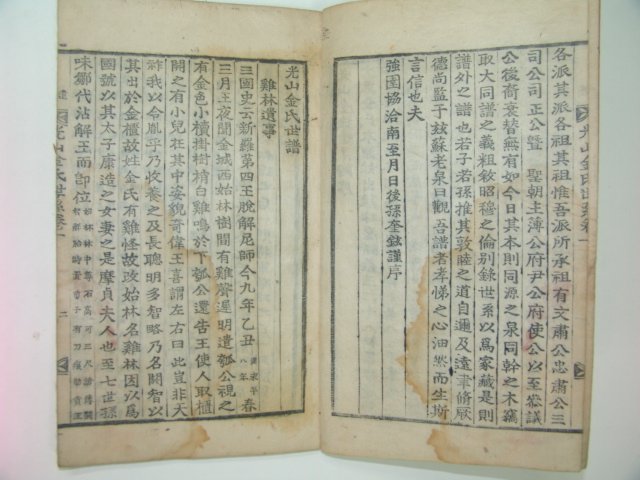 各派其派各祖其祖惟吾派所承祖有文肅公忠肅公三
司公司正公曁 聖朝主簿公府尹公府使公以至叅議
公後裔衰替無有如今日其本則同源之泉同幹之木竊
取大同譜之義粗敘昭穆之倫別錄世系以爲家藏是則
譜外之譜也若子若孫推其敦睦之道自邇及遠聿脩厥
德尚監于玆蘇老泉曰觀吾譜者孝悌之心油然而生斯
言信也夫
強圉協洽南至月日後孫奎鉉謹序
光山金氏世系卷一
光山金氏世譜
雞林遺事
三國史云新羅第四王脫解尼師今九年乙丑 漢永平八年 春
三月王夜聞金城西始林樹間有雞聲遲明遣瓠公視之
有金色小櫝掛樹梢白雞鳴於下瓠公還告王使人取櫃
開之有小兒在其中姿貌奇偉王喜謂左右曰此豈非天
祚我以令胤乎乃收養之及長聰明多智略乃名閼智以
其出於金櫃故姓金氏有雞怪故改始林名雞林因以爲
國號以其太子康造之女妻之是摩貞夫人也至七世孫
味鄒代沾解王而卽位
光山金氏世系卷一
二